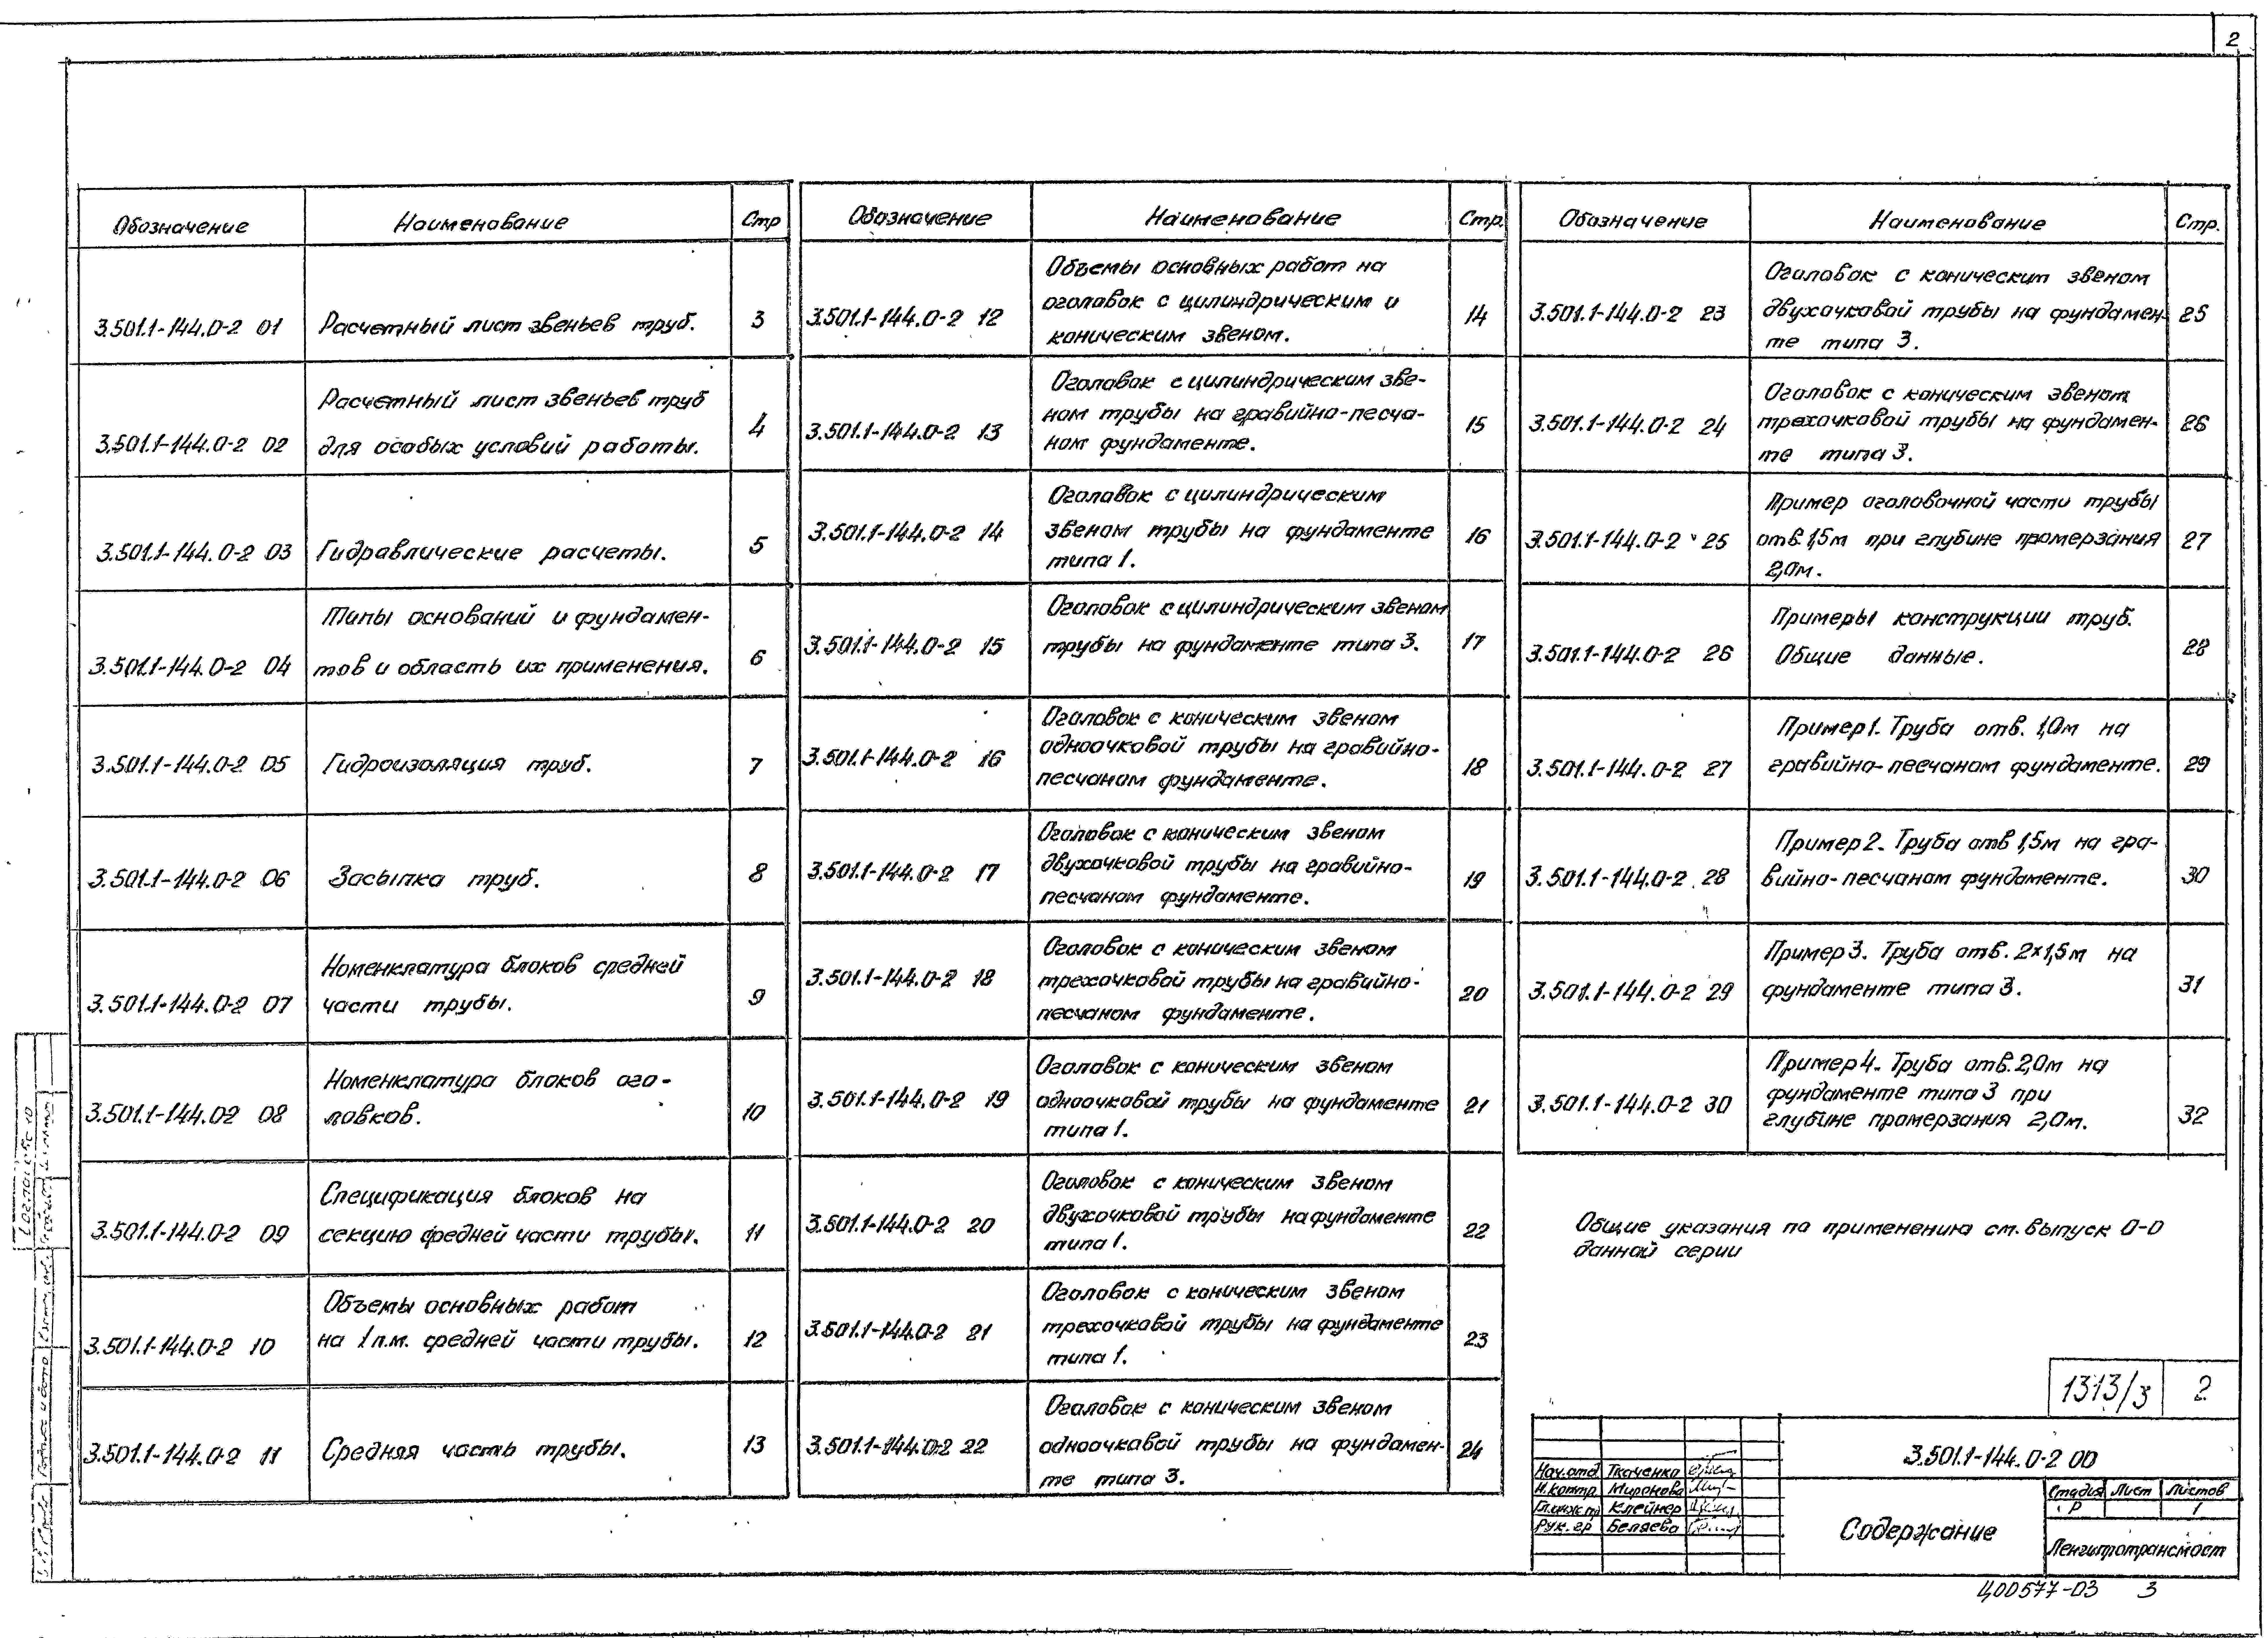 2
Обозначение Наименование Стр
3.501.1-144.0-2 01 Расчетный лист звеньев труб. 3
Расчетный лист звеньев труб
3.501.1-144.0-2 02 для особых условий работы. 4
3.501.1-144.0-2 03 Гидравлические расчеты. 5
Типы оснований и фундамен-
3.501.1-144.0-2 04 тов и область их применения. 6
3.501.1-144.0-2 05 Гидроизоляция труб. 7
3.501.1-144.0-2 06 Засыпка труб. 8
Номенклатура блоков средней
3.501.1-144.0-2 07 части трубы. 9
Номенклатура блоков ого-
3.501.1-144.0-2 08 ловков. 10
Спецификация блоков на
3.501.1-144.0-2 09 секцию средней части трубы. 11
Объемы основных работ
3.501.1-144.0-2 10 на 1 п.м. средней части трубы. 12
3.501.1-144.0-2 11 Средняя часть трубы. 13
Обозначение Наименование Стр.
Объемы основных работ на
3.501.1-144.0-2 12 оголовок с цилиндрическим и 14
коническим звеном.
Оголовок с цилиндрическим зве-
3.501.1-144.0-2 13 ном трубы на гравийно-песча- 15
ном фундаменте.
Оголовок с цилиндрическим
3.501.1-144.0-2 14 звеном трубы на фундаменте 16
типа 1.
Оголовок с цилиндрическим звеном
3.501.1-144.0-2 15 трубы на фундаменте типа 3. 17
Оголовок с коническим звеном
3.501.1-144.0-2 16 одноочковой трубы на гравийно- 18
песчаном фундаменте.
Оголовок с коническим звеном
3.501.1-144.0-2 17 двухочковой трубы на гравийно- 19
песчаном фундаменте.
Оголовок с коническим звеном
3.501.1-144.0-2 18 трехочковой трубы на гравийно- 20
песчаном фундаменте.
Оголовок с коническим звеном
3.501.1-144.0-2 19 одноочковой трубы на фундаменте 21
типа 1.
Оголовок с коническим звеном
3.501.1-144.0-2 20 двухочковой трубы на фундаменте 22
типа 1.
Оголовок с коническим звеном
3.501.1-144.0-2 21 трехочковой трубы на фундаменте 23
типа 1.
Оголовок с коническим звеном
3.501.1-144.0-2 22 одноочковой трубы на фундамен- 24
те типа 3.
Обозначение Наименование Стр.
Оголовок с коническим звеном
3.501.1-144.0-2 23 двухочковой трубы на фундамен- 25
те типа 3.
Оголовок с коническим звеном
3.501.1-144.0-2 24 трехочковой трубы на фундамен- 26
те типа 3.
Пример оголовочной части трубы
3.501.1-144.0-2 25 отв. 1,5м при глубине промерзания 27
2,0м.
Примеры конструкции труб.
3.501.1-144.0-2 26 Общие данные. 28
Пример 1. Труба отв. 1,0м на
3.501.1-144.0-2 27 гравийно-песчаном фундаменте. 29
Пример 2. Труба отв 1,5м на гра-
3.501.1-144.0-2 28 вийно-песчаном фундаменте. 30
Пример 3. Труба отв. 2×1,5м на
3.501.1-144.0-2 29 фундаменте типа 3. 31
Пример 4. Труба отв. 2,0м на
3.501.1-144.0-2 30 фундаменте типа 3 при
глубине промерзания 2,0м. 32
Общие указания по применению см. выпуск 0-0
данной серии
1313/3 2
3.501.1-144.0-2 00
Нач.отд Ткаченко
Н.контр Миронова
Гл.инж.пр Клейнер
Рук.гр Беляева
Содержание
Стадия Лист Листов
Р 1
Ленгипротрансмост
Ц00577-03 3